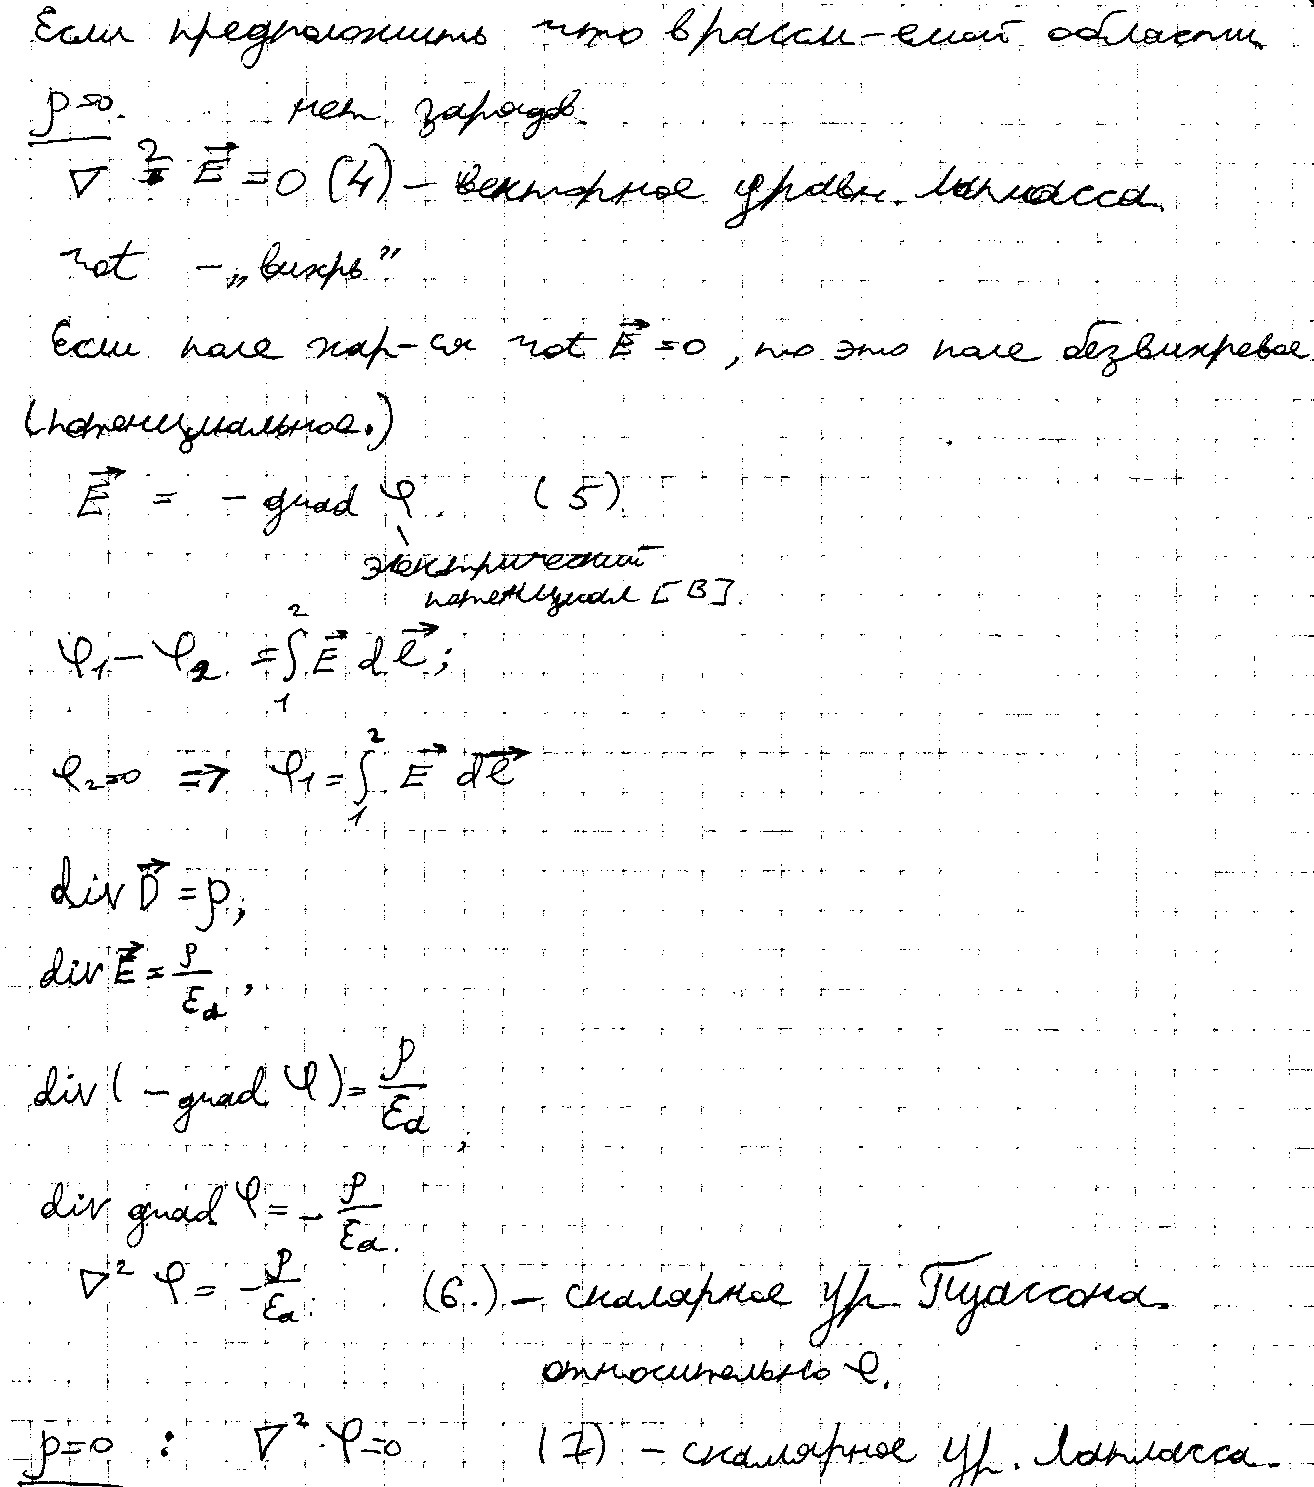 Если предположить что в рассм-емой области
ρ=0. нет зарядов.
∇² E⃗ = 0 (4) – векторное уравн. Лапласса.
rot – „вихрь”
Если поле хар-ся rot E⃗ = 0, то это поле безвихревое
(потенциальное.)
E⃗ = – grad φ. (5).
электрический
потенциал [В].
φ₁ – φ₂ = ∫₁² E⃗ dl⃗;
φ₂=0 ⇒ φ₁ = ∫₁² E⃗ dl⃗
div D⃗ = ρ;
div E⃗ = ρ/εa,
div(– grad φ) = ρ/εa;
div grad φ = – ρ/εa.
∇² φ = – ρ/εa. (6.) – скалярное ур. Пуассона.
относительно φ.
ρ=0 : ∇²·φ=0 (7) – скалярное ур. Лапласса.